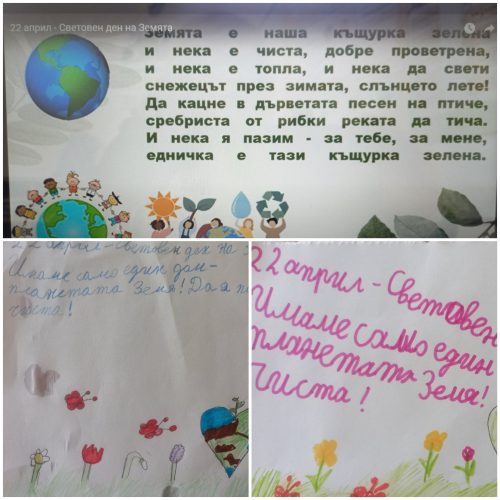 22 април - Световен ден на Земята
Земята е наша къщурка зелена
и нека е чиста, добре проветрена,
и нека е топла, и нека да свети
снежецът през зимата, слънцето лете!
Да кацне в дърветата песен на птиче,
сребриста от рибки реката да тича.
И нека я пазим - за тебе, за мене,
едничка е тази къщурка зелена.
22 април-Световен ден на З
Имаме само един дом-
планетата Земя! Да я п
чиста!
22 април-Световен
Имаме само един
планетата Земя!
Чиста!